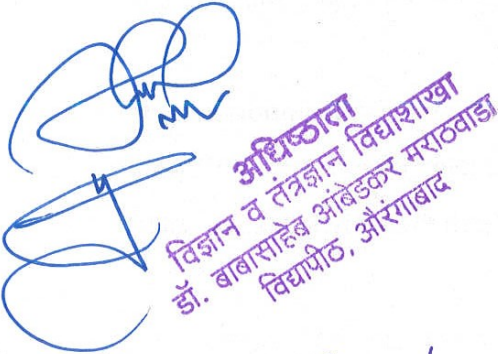 अधिष्ठाता
विज्ञान व तंत्रज्ञान विद्याशाखा
डॉ. बाबासाहेब आंबेडकर मराठवाडा
विद्यापीठ, औरंगाबाद